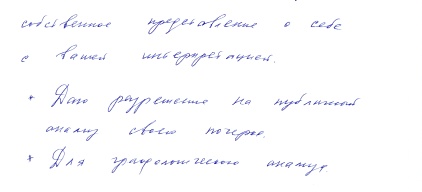 собственное представление о себе
с вашей интерпретацией.
* Даю разрешение на публичный
анализ своего почерка.
* Для графологического анализа.